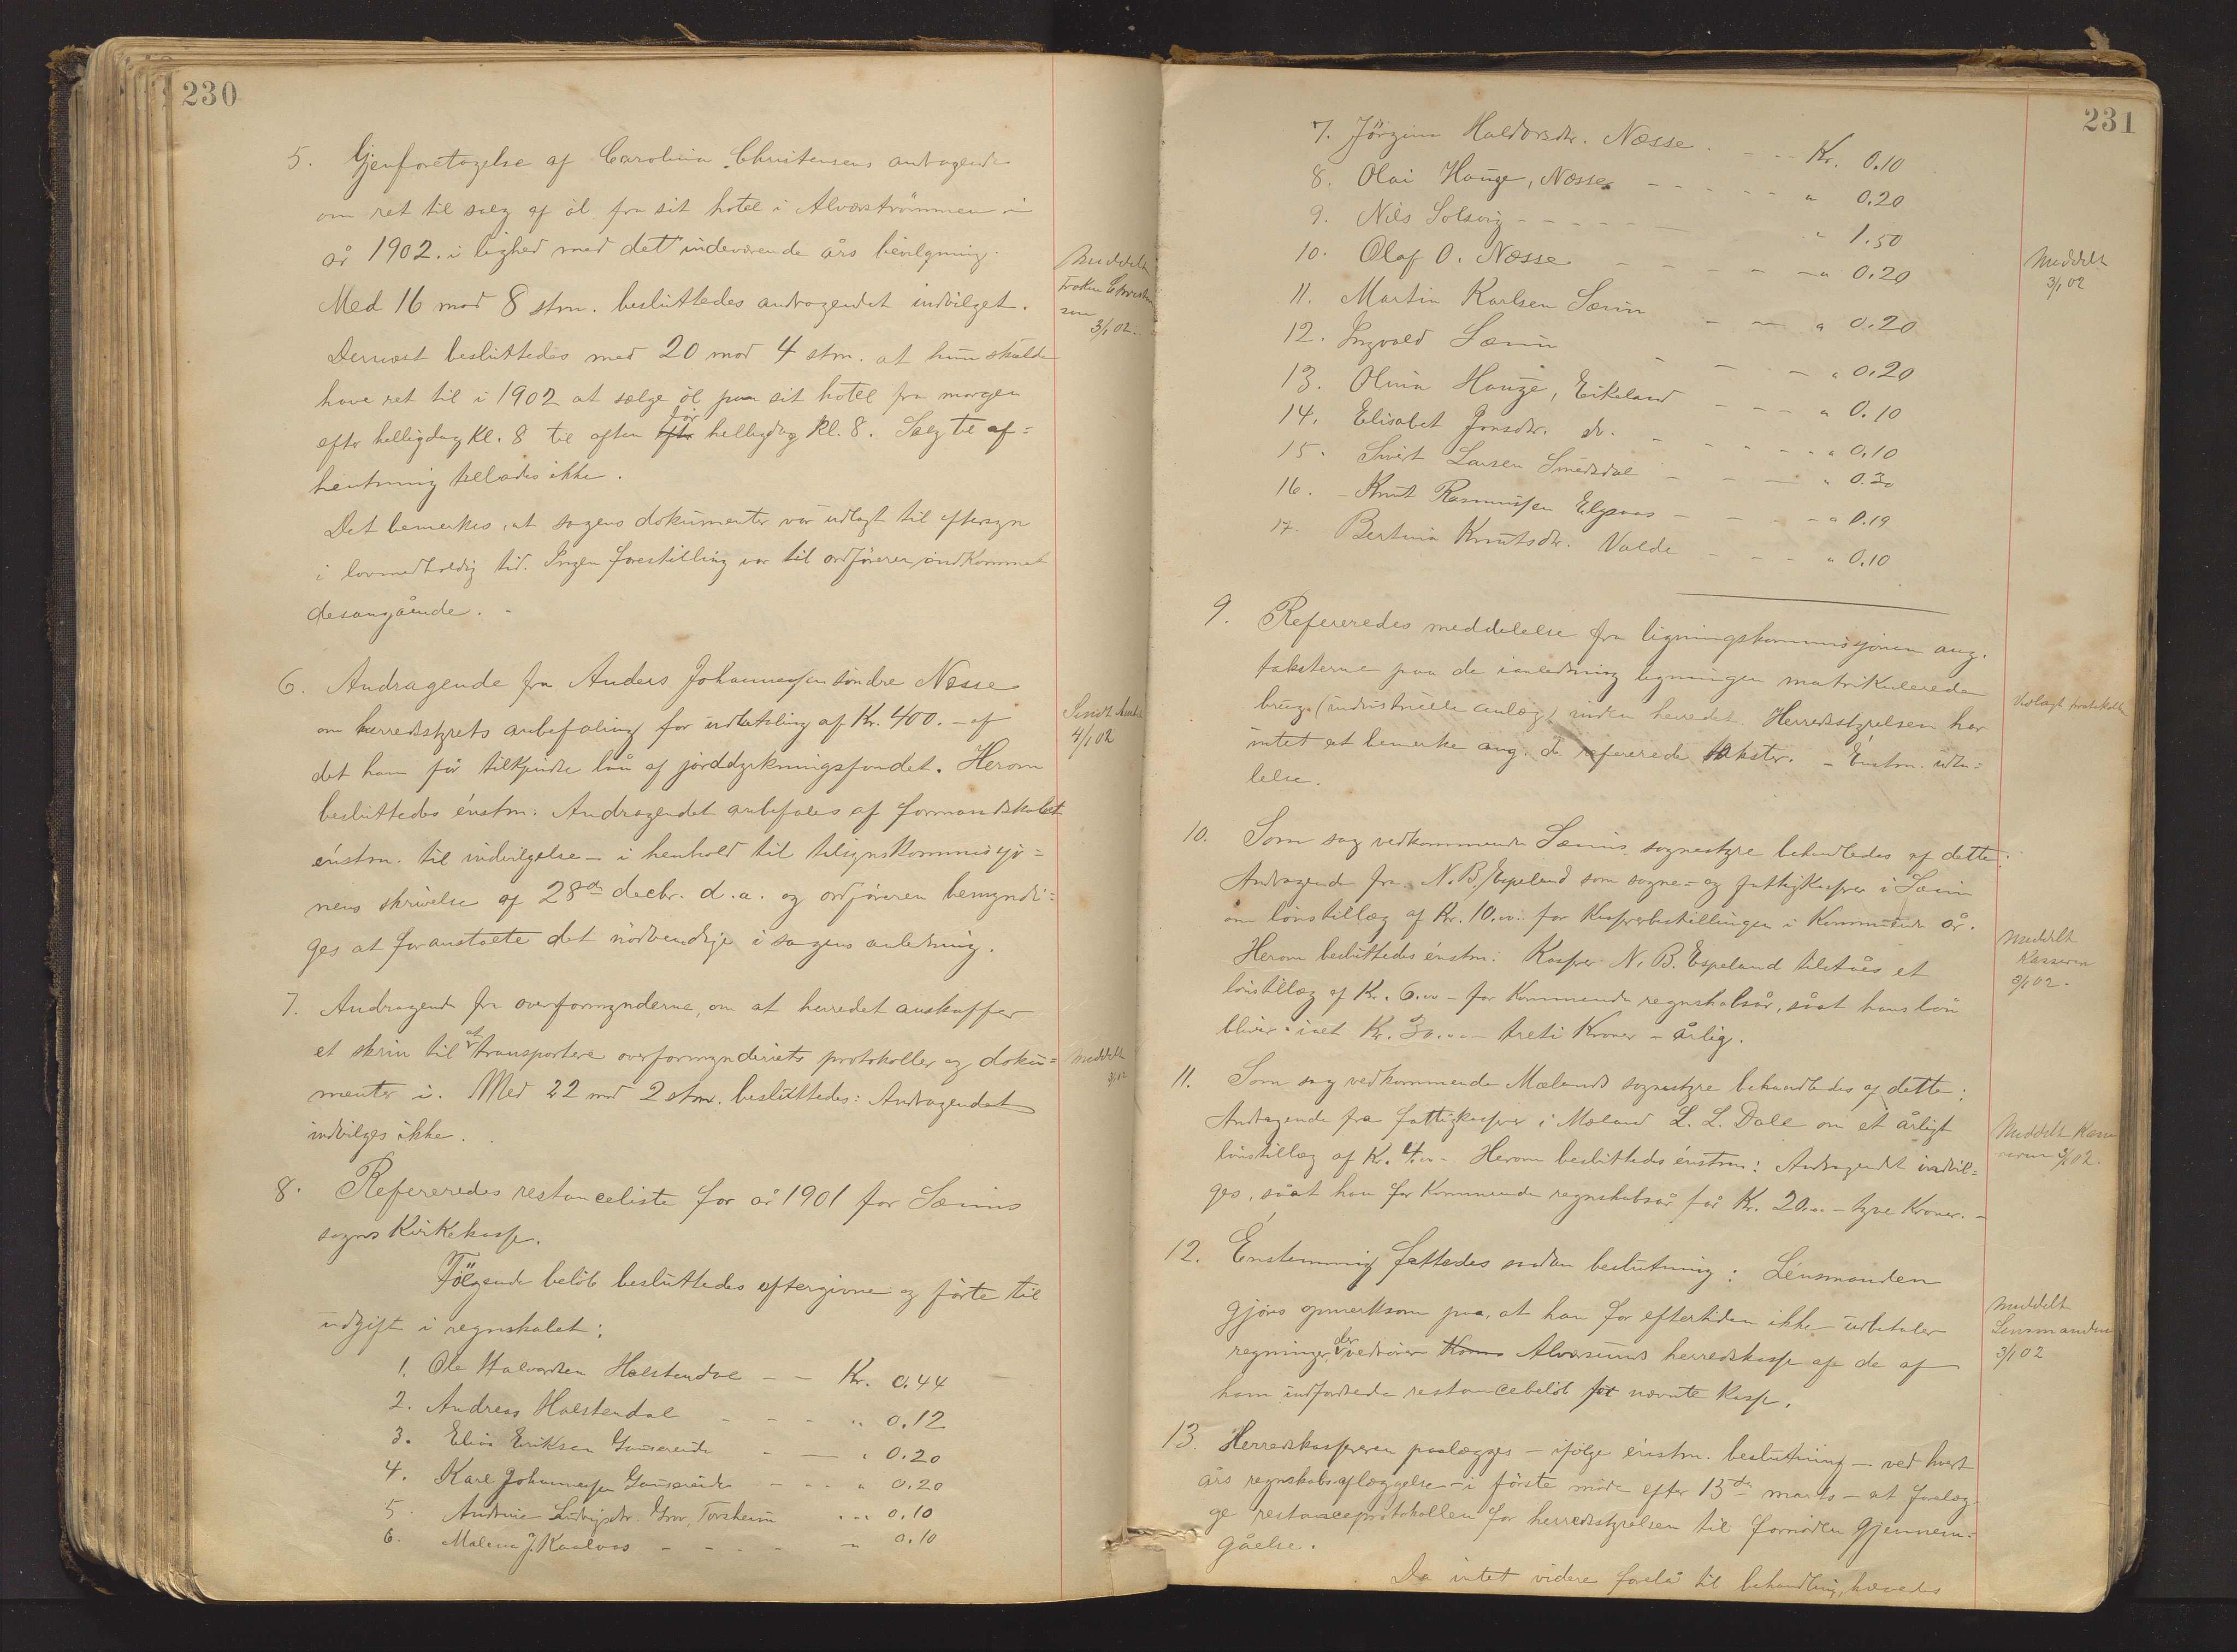 230
5. Gjenforetagelse af Carolina Christensens andragende
om ret til salg af öl fra sit hotel i Alverströmmen i
år 1902 i lighed med det indeværende års bevilgning.
Med 16 mod 8 stm. besluttedes andragendet indvilget.
Dernæst besluttedes med 20 mod 4 stm. at hun skulde
have ret til i 1902 at sælge öl paa sit hotel fra morgen
efter helligdag kl. 8 til aften för helligdag kl. 8. Salg til af=
hentning tillades ikke.
Det bemerkes, at sagens dokumenter var udlagt til eftersyn
i lovmedholdig tid. Ingen forestilling var til ordföreren indkommet
desangående. -
Meddelt
Fröken Christen
sen
3/1 02.
6. Andragende fra Anders Johannessen söndre Næsse
om herredsstyrets anbefaling for udbetaling af Kr. 400. - af
det ham för tilkjendte lån af jorddyrkningsfondet. Herom
besluttedes énstm: Andragendet anbefales af formandskabet
énstm. til indvilgelse - i henhold til tilsynskommissjo=
nens skrivelse af 28de decbr. d.a. og ordföreren bemyndi=
ges at foranstalte det nödvendige i sagens anledning.
Sendt
4/1 02
7. Andragende fra overformynderne, om at herredet anskaffer
et skrin til at transportere overformynderiets protokoller og doku=
menter i. Med 22 mod 2 stm. besluttedes: Andragendet
indvilges ikke.
Meddelt
3/1 02
8. Refereredes restanceliste for år 1901 for Sæims
sogns Kirkekasse.
Fölgende belöb besluttedes eftergivne og förte til
udgift i regnskabet:
1. Ole Halvorsen Helstendal - - Kr. 0.44
2. Andreas Halstendal - - - " 0.12
3. Elias Eriksen Gausereide - - " 0.20
4. Karl Johannessen Gausereide - - - " 0.20
5. Andrine Ludvigsdtr. Grov, Torsheim " 0.10
6. Malena J. Kaalaas - - - - " 0.10
231
7. Jörgine Haldorsdtr. Næsse. - - - Kr. 0.10
8. Olai Hauge, Næsse - - - - - " 0.20
9. Nils Solsvig - - - - - " 1.50
10. Olaf O. Næsse - - - - - " 0.20
11. Martin Karlsen Sæim - - " 0.20
12. Ingvald Sæim - - - " 0.20
13. Olina Hauge, Eikeland - - - " 0.10
14. Elisabet Jonsdtr. do. - - - - " 0.10
15. Sivert Larsen Smedsdal - - - " 0.30
16. Knut Rasmussen Elsaas - - - - " 0.19
17. Bertina Knutsdtr. Valde - - - " 0.10
Meddelt
3/1 02
9. Refereredes meddelelse fra ligningskommissjonen ang.
taksterne paa de i anledning ligningen matrikulerede
brug (industrielle anlæg) inden herredet. Herredsstyrelsen har
intet at bemerke ang. de refererede takster. - Énstm. udta=
lelse.
10. Som sag vedkommende Sæims sognestyre behandledes af dette:
Andragende fra N. B. Espeland som sogne= og fattigkasserer i Sæim
om lönstillæg af Kr. 10.00 for Kassererbestillingen i Kommende år.
Herom besluttedes énstm: Kasserer N. B. Espeland tilståes et
lönstillæg af Kr. 6.00 - for Kommende regnskabsår, såat hans lön
bliver i alt Kr. 30.00 - treti Kroner - årlig.
Meddelt
Kasserer
3/1 02.
11. Som sag vedkommende Mælands sognestyre behandledes af dette:
Andragende fra fattigkasserer i Mæland L. L. Dale om et årligt
lönstillæg af Kr. 4.00 - Herom besluttedes énstm: Andragendet indvil=
ges, såat han for Kommende regnskabsår får Kr. 20.00 - tyve Kroner. -
Meddelt Kasse
reren 3/1 02.
12. Énstemmig fattedes sådan beslutning: Lénsmanden
gjöres opmerksom paa, at han for eftertiden ikke udbetaler
regninger, der vedrörer Alversunds herredskasse af de af
ham indfordrede restancebelöb for nævnte Kasse.
Meddelt
Lensmanden
3/1 02
13. Herredskassereren paalægges - ifölge énstm. beslutning - ved hvert
års regnskabsaflæggelse - i förste möde efter 15de marts - at forelæg=
ge restanceprotokollen for herredsstyrelsen til fornöden gjennem=
gåelse.
Da intet videre forelå til behandling, hævedes